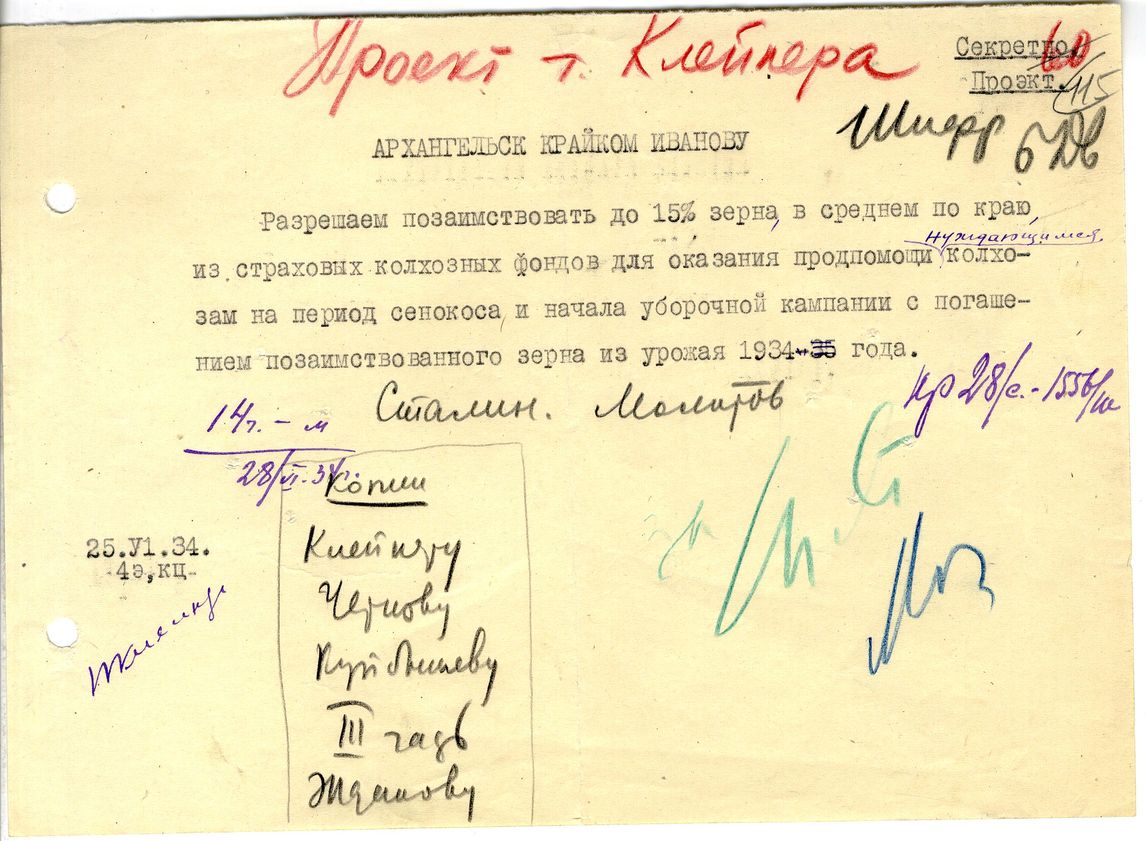 Проект т. Клейнера
Секретно
60
Проэкт.
115
Шифр
АРХАНГЕЛЬСК КРАЙКОМ ИВАНОВУ
Разрешаем позаимствовать до 15% зерна, в среднем по краю,
нуждающимся
из страховых колхозных фондов для оказания продпомощи колхо-
зам на период сенокоса и начала уборочной кампании с погаше-
нием позаимствованного зерна из урожая 1934-35 года.
Сталин. Молотов
14г. – м
28/VI.34г.
Копии
Клейнеру
Чернову
Куйбышеву
III
Жданову
25.У1.34.
4э,кц